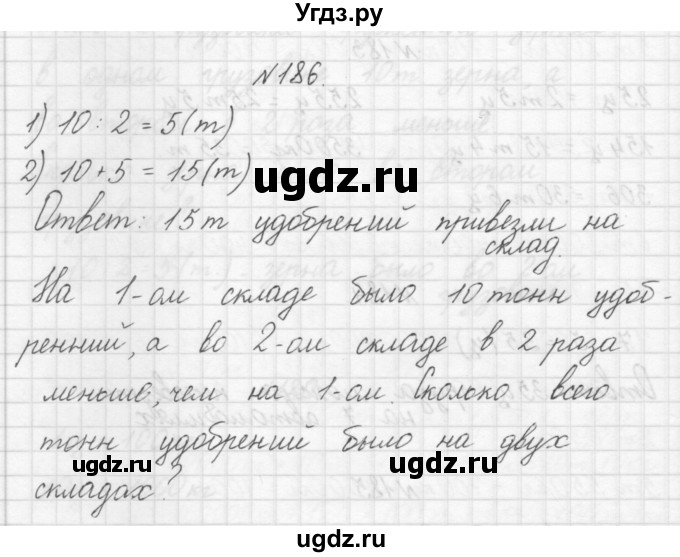 Угдз.ру
№186.
1) 10 : 2 = 5(т)
2) 10 + 5 = 15(т)
ugdz.ru
Ответ: 15т удобрений привезли на
склад.
На 1-ом складе было 10 тонн удоб-
ренний, а во 2-ом складе в 2 раза
меньше, чем на 1-ом. Сколько всего
тонн удобрений было на двух
ugdz.ru
ugdz.ru
складах?
ugdz.ru